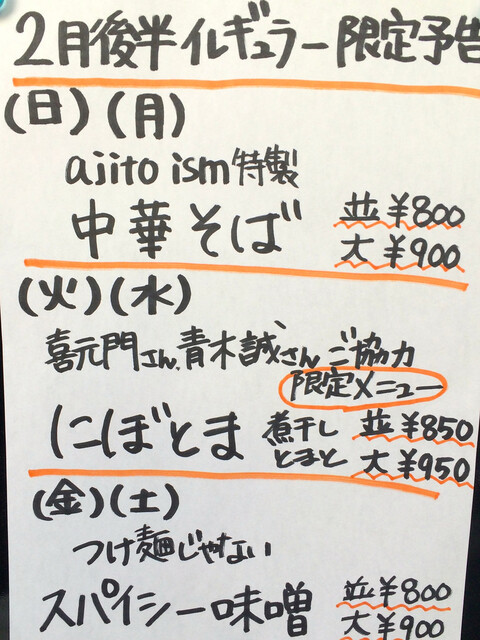 2月後半イルギュラー限定予告
(日)(月)
ajito ism特製
中華そば
並¥800
大¥900
(火)(水)
喜元門さん、青木誠さんご協力
限定メニュー
にぼとま
煮干し
とまと
並¥850
大¥950
(金)(土)
つけ麺じゃない
スパイシー味噌
並¥800
大¥900